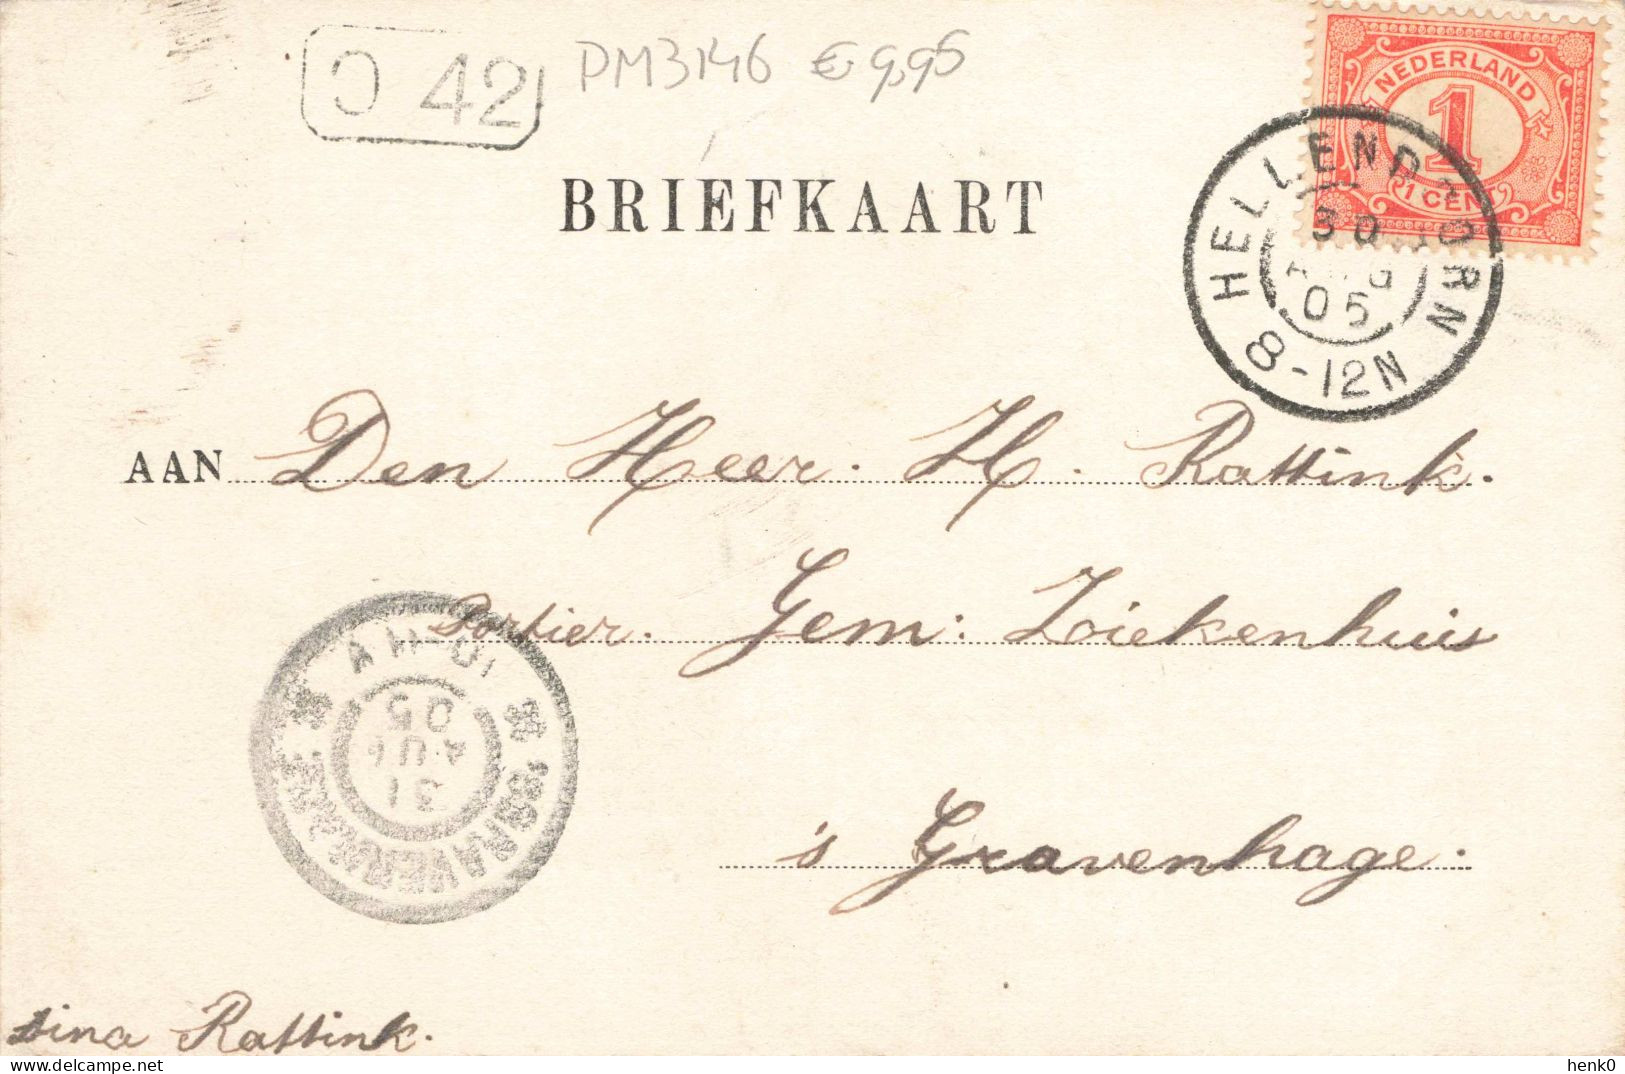 42
PM3146 € 9,95
NEDERLAND
1
1 CENT
BRIEFKAART
HELLENDOORN
30
AUG
05
8-12N
AAN Den Heer. H. Rattink.
Portier. Gem: Ziekenhuis
's Gravenhage.
'SGRAVENHAGE
31
AUG
05
Dina Rattink.
henk0